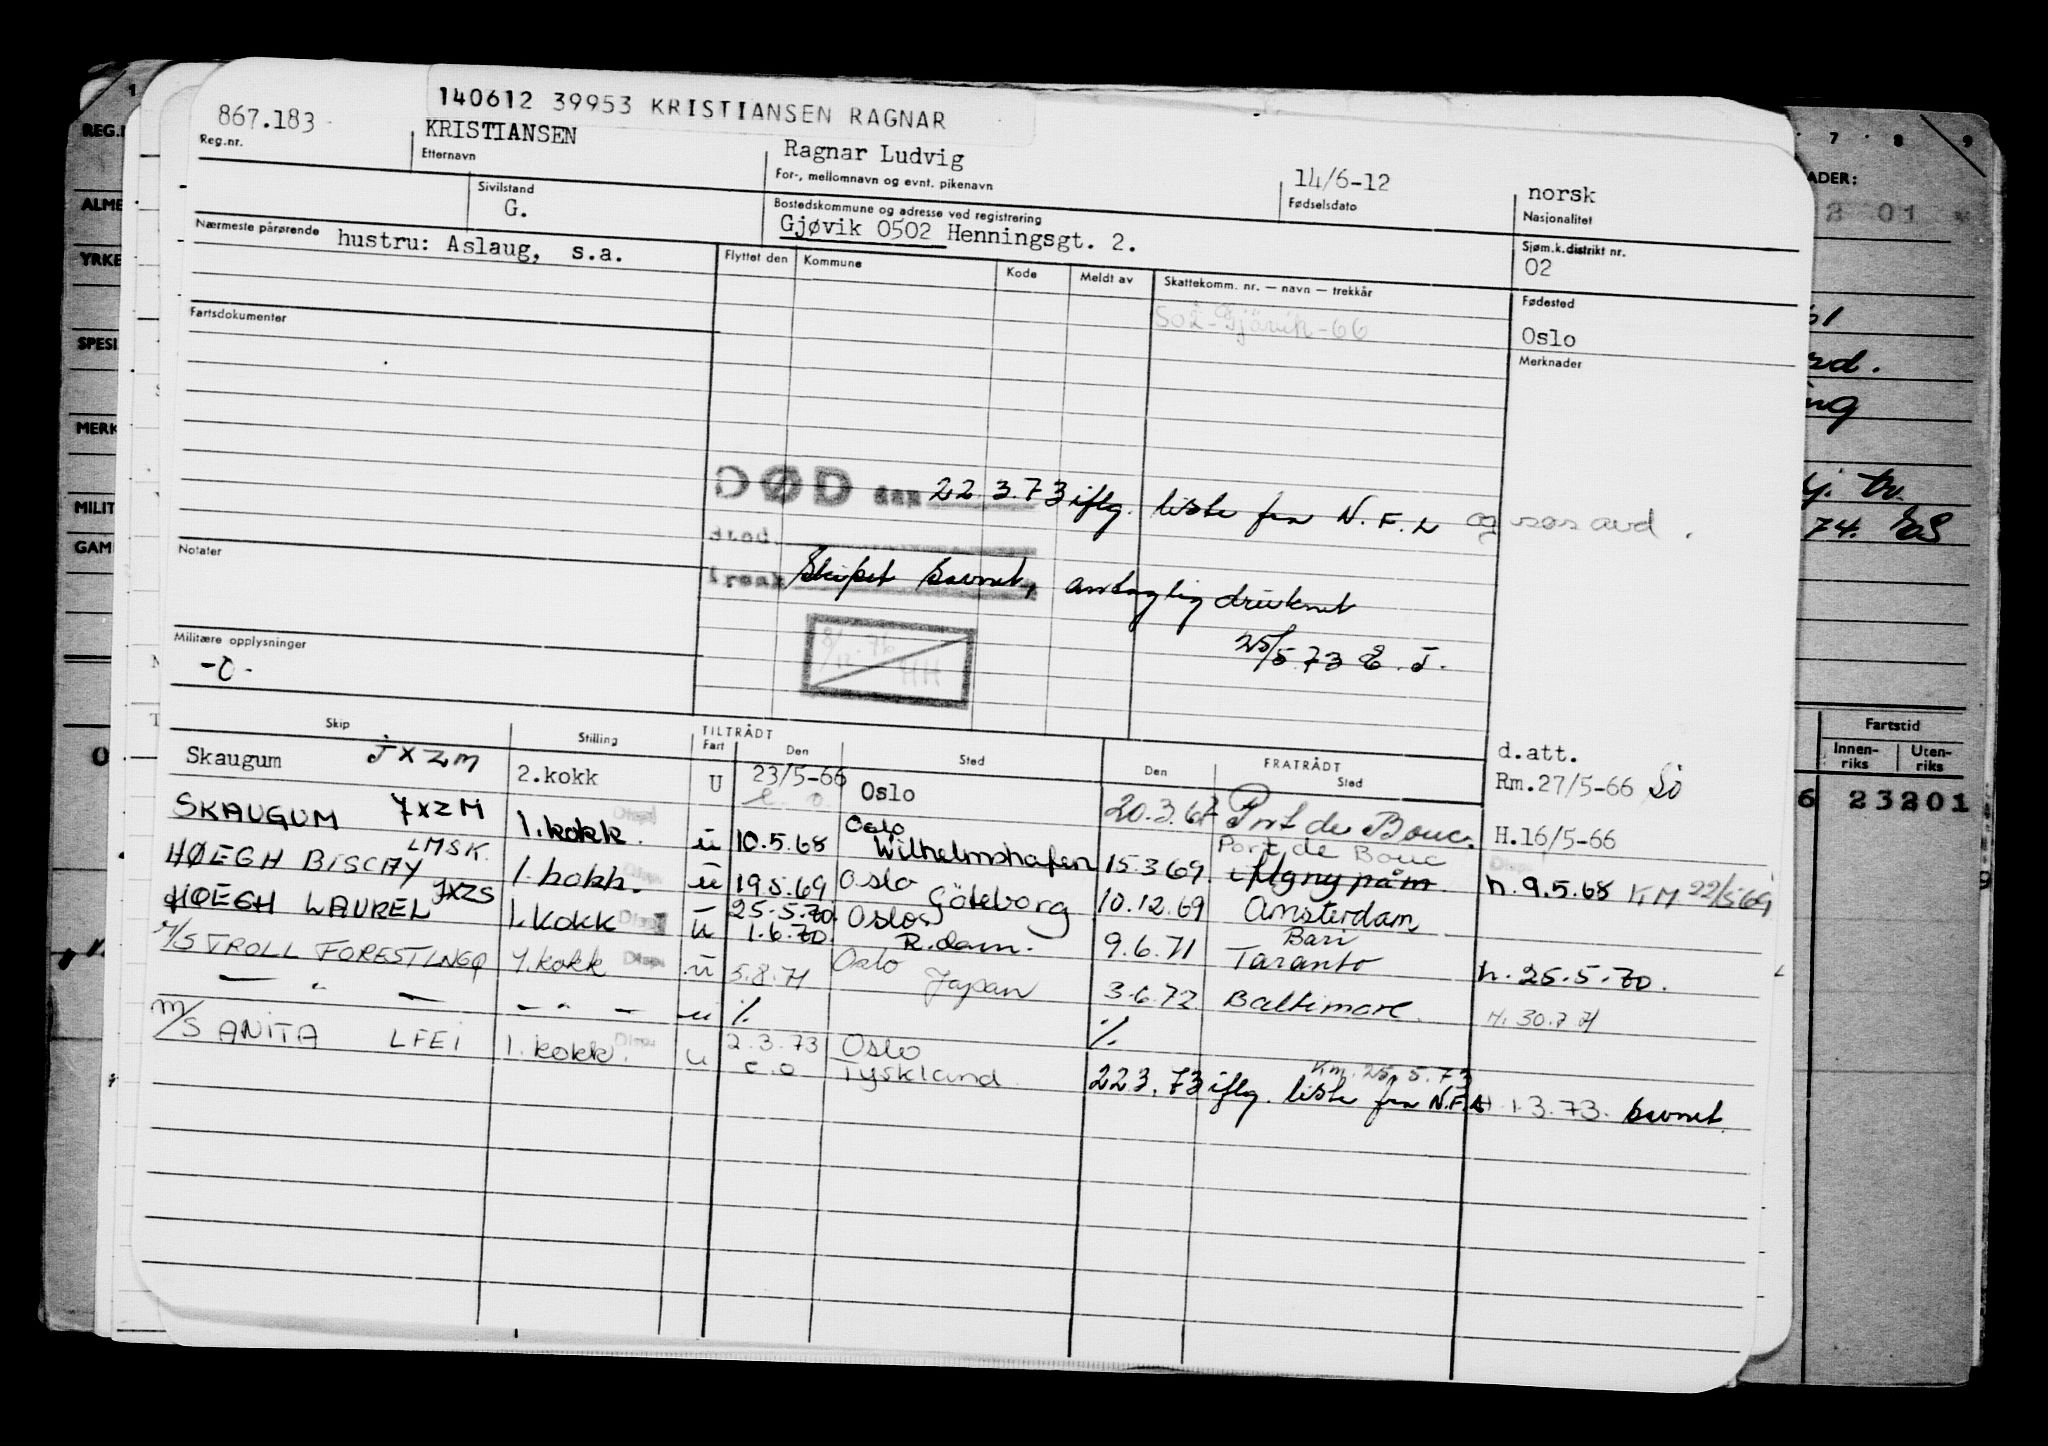 140612 39953 KRISTIANSEN RAGNAR
867.183 KRISTIANSEN Ragnar Ludvig 14/6-12 norsk
Reg.nr. Etternavn For-, mellomnavn og evnt. pikenavn Fødselsdato Nasjonalitet
Sivilstand Bostedskommune og adresse ved registrering Sjøm.k.distrikt nr.
G. Gjøvik 0502 Henningsgt. 2. 02
Nærmeste pårørende hustru: Aslaug, s.a.
Flyttet den Kommune Kode Meldt av Skattekomm. nr. — navn — trekkår Fødested
502-Gjövik-66 Oslo
Fartsdokumenter Merknader
DØD den 22.3.73 iflg. liste fra N.F.L og sos avd.
Sted
Årsak Skipet savnet, antaglig druknet
25/5.73 E.J.
Notater
8/12-76 HH
Militære opplysninger
-0-
Skip Stilling TILTRÅDT Fart Den Sted FRATRÅDT Den Sted
d.att.
Skaugum JXZM 2.kokk U 23/5-66 Oslo 20.3.67 Port de Bouc. Rm.27/5-66 Sö
e.o.
H.16/5-66
SKAUGUM JXZM 1.kokk. u 10.5.68 Oslo Wilhelmshafen 15.3.69. Port de Bouc h. 9.5.68 KM 22/5 69
HØEGH BISCAY LMSK. 1.kokk. u 19.5.69 Oslo Göteborg 10.12.69 Amsterdam
HØEGH LAUREL JXZS 1.kokk u 25.5.70. 1.6.70. Oslo R.dam. 9.6.71 Bari Taranto h. 25.5.70.
M/S TROLL FOREST LNGQ 1.kokk u 5.8.71 Oslo Japan 3.6.72 Baltimore. H. 30.7 71
— " — — " — u % %
M/S ANITA LFEI 1.kokk. u 2.3.73 Oslo
e.o Tyskland 22.3.73 iflg. liste fra N.F.L H 1.3.73. savnet.
Km. 25.5.73
1 7 8 9
REG.
ADER:
ALME
3 01
YRKE
SPESI
61
rd.
MERK
MILIT
74.
GAM
Fartstid
Innen-riks Uten-riks
6 23201